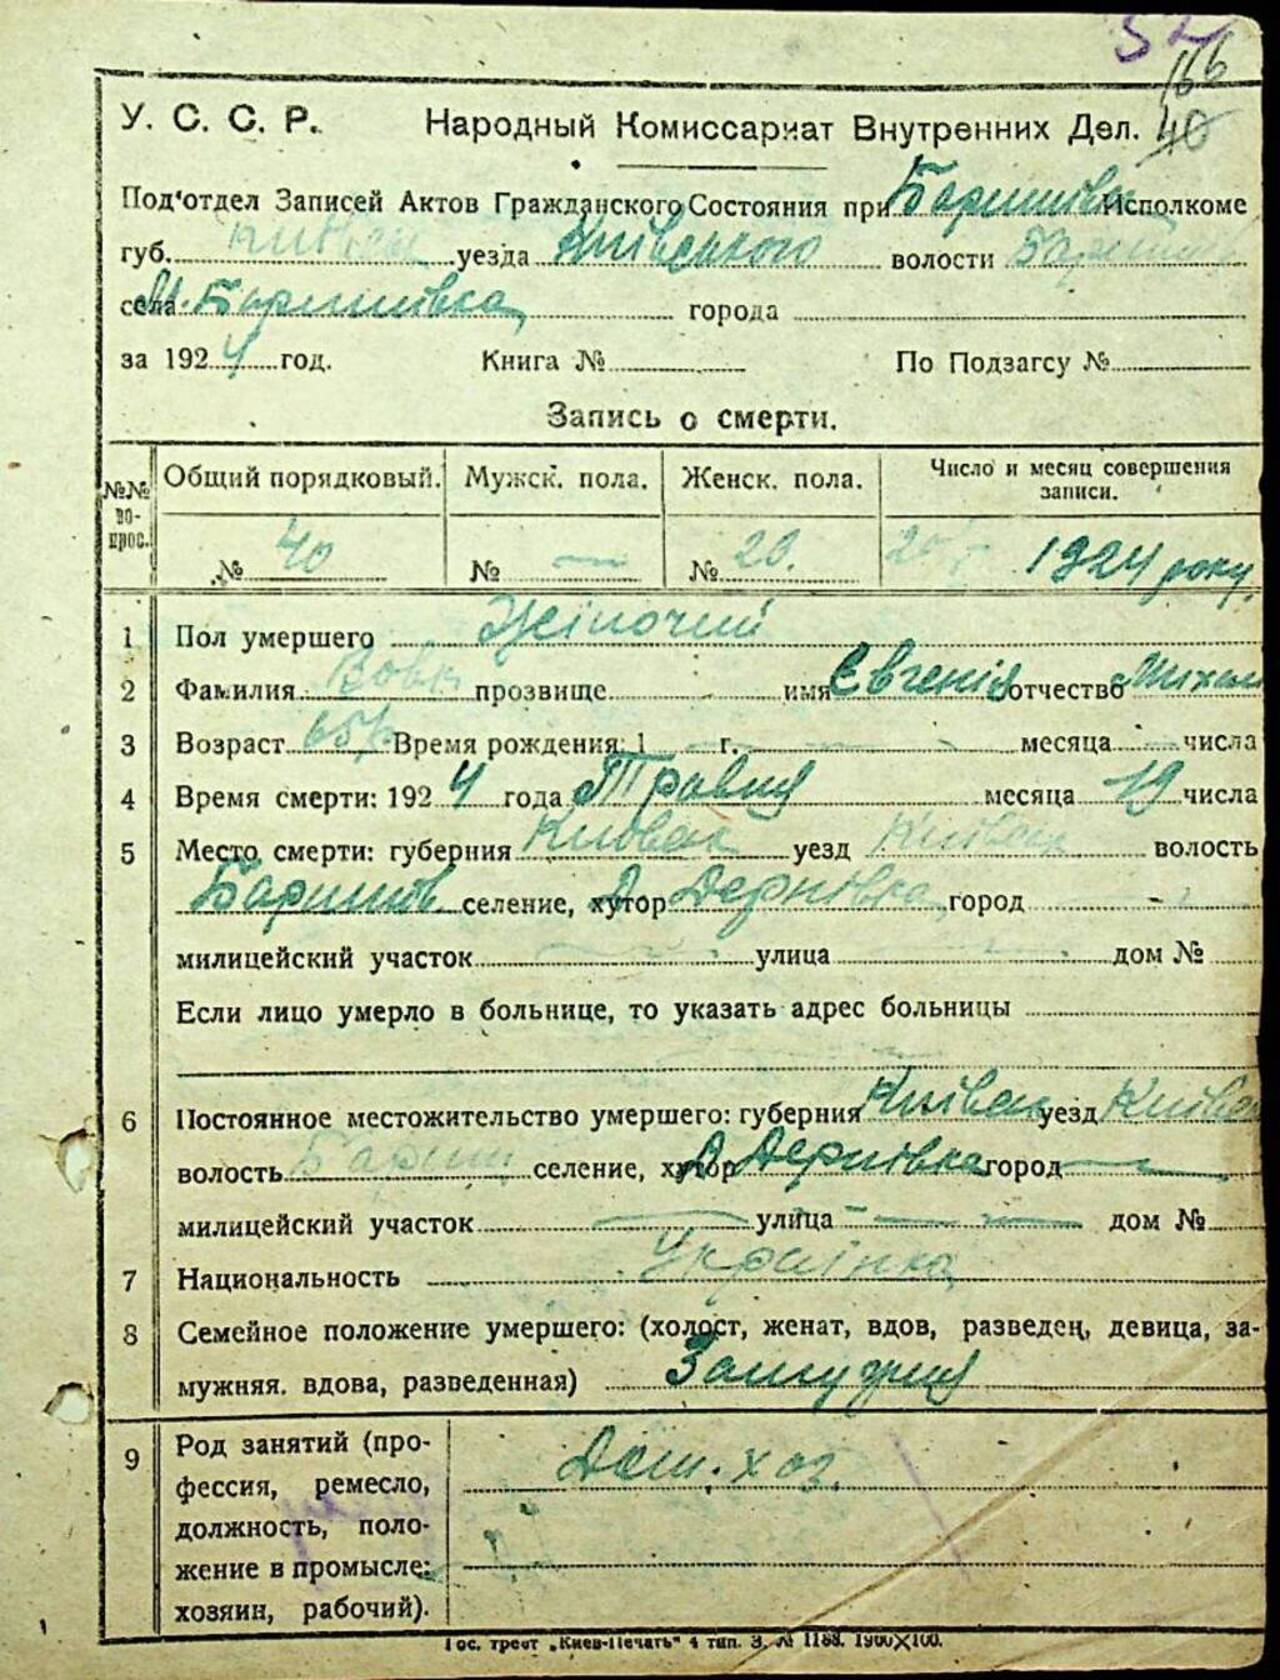 52
166
У. С. С. Р. Народный Комиссариат Внутренних Дел. 40
Под'отдел Записей Актов Гражданского Состояния при Баришівск Исполкоме
губ. Київськ уезда Київського волости Баришів
села М. Баришівка города
за 1924 год. Книга № По Подзагсу №
Запись о смерти.
№№ вопрос. Общий порядковый. Мужск. пола. Женск. пола. Число и месяц совершения записи.
№ 40 № — № 20. 20/V 1924 року.
1 Пол умершего Жіночий
2 Фамилия Вовк прозвище имя Євгенія отчество Михай
3 Возраст 65 р. Время рождения: 1 — г. — месяца — числа
4 Время смерти: 1924 года Травня месяца 19 числа
5 Место смерти: губерния Київськ уезд Київськ волость
Баришів селение, хутор Д Дернівка город —
милицейский участок — улица — дом №
Если лицо умерло в больнице, то указать адрес больницы
—
6 Постоянное местожительство умершего: губерния Київськ уезд Київськ
волость Бариш селение, хутор Д Дернівка город —
милицейский участок — улица — дом №
7 Национальность Українка
8 Семейное положение умершего: (холост, женат, вдов, разведен, девица, за-
мужняя. вдова, разведенная) Замужня
9 Род занятий (про-
фессия, ремесло,
должность, поло-
жение в промысле:
хозяин, рабочий). Дом. хоз.
Гос. трест „Киев-Печать" 4 тип. З. № 1188. 1900×100.